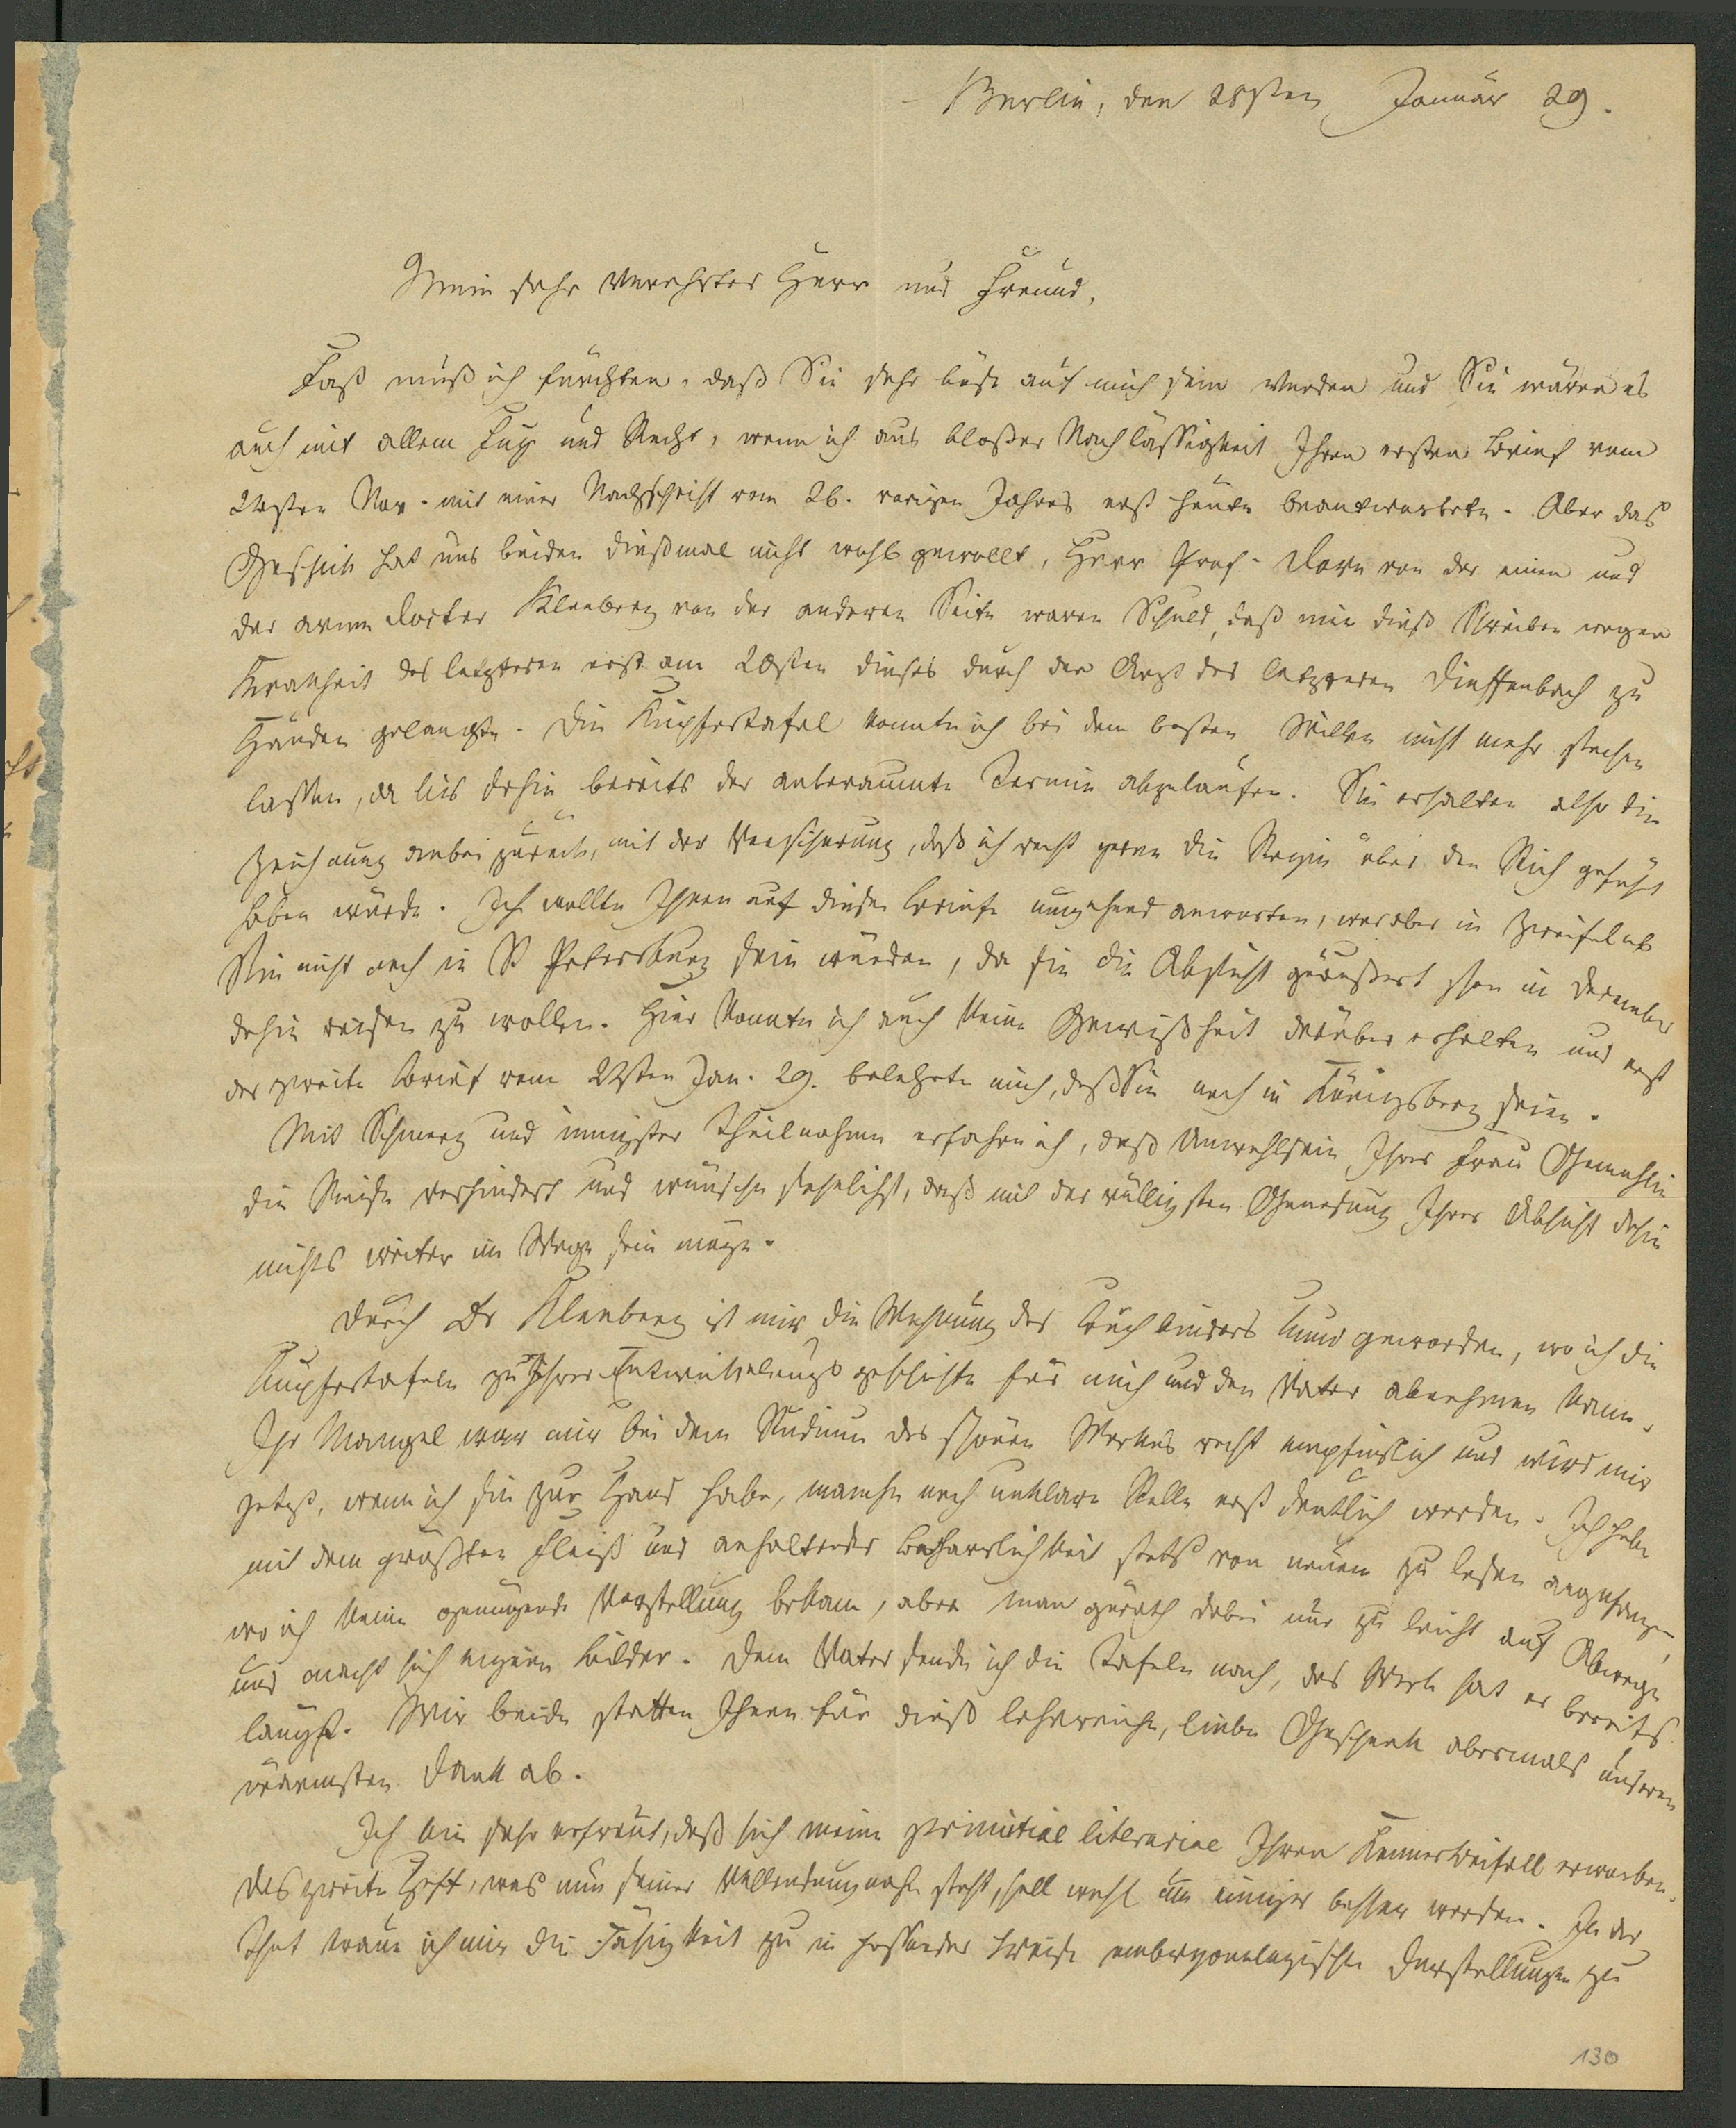 Berlin, den 28sten Januar 29.
Mein sehr verehrter Herr und Freund,
Fast muß ich fürchten, daß Sie sehr böse auf mich sein werden und Sie wären es
auch mit allem Fug und Recht, wenn ich aus bloßer Nachlässigkeit Ihren ersten Brief vom
24sten Nov. mit einer Nachschrift vom 26. vorigen Jahres erst heute beantwortete. Aber das
Geschick hat uns beiden dießmal nicht wohl gewollt, Herr Prof. Dorn von der einen und
der arme Doctor Kleeberg von der anderen Seite waren Schuld, daß mir dieß Schreiben wegen
Krankheit des letzteren erst am 20sten dieses durch den Arzt des letzteren Dieffenbach zu
Händen gelangte. Die Kupfertafel konnte ich bei dem besten Willen nicht mehr stechen
lassen, da bis dahin bereits der anberaumte Termin abgelaufen. Sie erhalten also die
Zeichnung anbei zurück, mit der Versicherung, daß ich recht gerne die Regie über den Stich geführt
haben würde. Ich wollte Ihnen auf diesen Brief umgehend antworten, war aber in Zweifel ob
Sie nicht auch in St Petersburg sein würden, da sie die Absicht geäußert schon im December
dahin reisen zu wollen. Hier konnte ich auch keine Gewißheit darüber erhalten und erst
der zweite Brief vom 22sten Jan. 29. belehrte mich, daß Sie noch in Königsberg seien.
Mit Schmerz und innigster Theilnahme erfahre ich, daß Unwohlsein Ihrer Frau Gemahlin
die Reise verhindert und wünsche sehnlichst, daß mit der völligsten Genesung Ihrer Absicht dahin
nichts weiter im Wege sein möge.
Durch Dr Kleeberg ist mir die Wohnung des Buchbinders kund geworden, wo ich die
Kupfertafeln zu Ihrer Entwickelungsgeschichte für mich und den Vater abnehmen kann.
Ihr Mangel war mir bei dem Studium des schönen Werkes recht empfindlich und wird mir
jetzt, wenn ich sie zur Hand habe, manche noch unklare Stelle erst deutlich werden. Ich habe
mit dem größten Fleiß und anhaltender Beharrlichkeit stets von neuem zu lesen angefangen,
wo ich keine genügende Vorstellung bekam, aber man geräth dabei nur zu leicht auf Abwege
und macht sich eigene Bilder. Dem Vater sende ich die Tafeln nach, das Werk hat er bereits
längst. Wir beide statten Ihnen für dieß lehrreiche, liebe Geschenk abermals unseren
wärmsten Dank ab.
Ich bin sehr erfreut, daß sich meine primitiae literariae Ihren Kennerbeifall erworben.
Das zweite Heft, was nun seiner Vollendung nahe steht, soll wohl um einiges besser werden. In der
That traue ich mir die Fähigkeit zu in passender Weise embryonologische Darstellungen zu
130